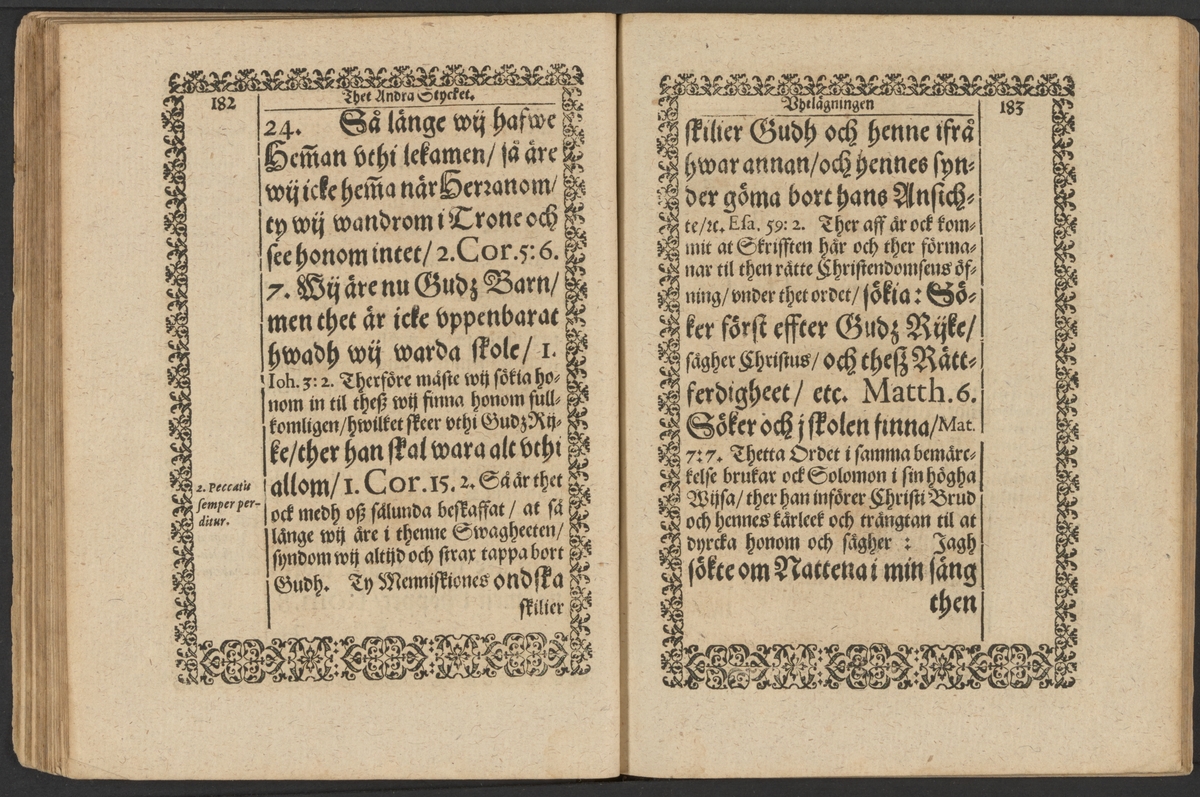 182
Thet Andra Stycket.
24. Så länge wij hafwe
Hem̃an vthi lekamen/ så äre
wij icke hem̃a när Herranom/
ty wij wandrom i Trone och
see honom intet/ 2. Cor. 5: 6.
7. Wij äre nu Gudz Barn/
men thet är icke vppenbarat
hwadh wij warda skole/ 1.
Ioh. 3: 2. Therföre måste wij sökia ho-
nom in til theß wij finna honom full-
komligen/ hwilket skeer vthi Gudz Rij-
ke/ ther han skal wara alt vthi
allom/ 1. Cor. 15. 2. Så är thet
ock medh oß sålunda beskaffat/ at så
länge wij äre i thenne Swagheeten/
syndom wij altijd och strax tappa bort
Gudh. Ty Menniskiones ondska
skilier
2. Peccatis
semper per-
ditur.
Vhtlägningen
183
skilier Gudh och henne ifrå
hwar annan/ och hennes syn-
der göma bort hans Ansich-
te/ ꝛc. Esa. 59: 2. Ther aff är ock kom-
mit at Skrifften här och ther förma-
nar til then rätte Christendomsens öf-
ning/ vnder thet ordet/ sökia: Sö-
ker först effter Gudz Rijke/
sägher Christus/ och theß Rätt-
ferdigheet/ etc. Matth. 6.
Söker och j skolen finna/ Mat.
7: 7. Thetta Ordet i samma bemärc-
kelse brukar ock Solomon i sin högha
Wijsa/ ther han införer Christi Brud
och hennes kärleek och trängtan til at
dyrcka honom och sägher : Jagh
sökte om Nattena i min säng
then